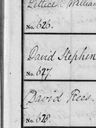 William
No. 626.
David Stephen
No. 627.
David Rees.
No. 628.